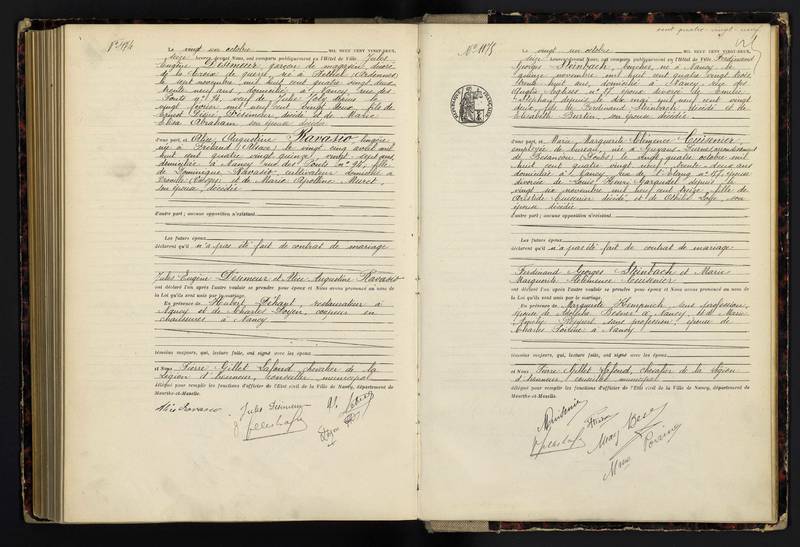 Nº 1174
Le vingt un octobre MIL NEUF CENT VINGT-DEUX,
onze heures devant Nous, ont comparu publiquement en l'Hôtel de Ville Jules
Eugène Doumeur, garçon de magasin, décoré
de la Croix de guerre, né à Rethel (Ardennes)
le sept novembre mil huit cent quatre vingt deux
trente neuf ans, domicilié à Nancy, rue des
Ponts nº 94, veuf de Julie Joly depuis le
vingt février mil neuf cent vingt deux, fils de
Ernest Pierre Doumeur, décédé et de Marie
Elisa Abraham, son épouse décédée
d'une part, et Alice Augustine Ravasio, lingère
née à
huit cent quatre vingt quinze, vingt sept ans,
domiciliée à Nancy rue des Ponts nº 94, fille
de Dominique Ravasio cultivateur domicilié à
(Vosges) et de Marie Apolline Muret,
son épouse, décédée
d'autre part ; aucune opposition n'existant
Les futurs époux
déclarent qu'il n'a pas été fait de contrat de mariage
Jules Eugène Doumeur et Alice Augustine Ravasio
ont déclaré l'un après l'autre vouloir se prendre pour époux et Nous avons prononcé au nom de
la Loi qu'ils sont unis par le mariage.
En présence de Hubert, restaurateur à
Nancy et de Charles, coupeur en
chaussures à Nancy
témoins majeurs, qui, lecture faite, ont signé avec les époux
et Nous Pierre Gillet Lafond, chevalier de la
Légion d'honneur, conseiller municipal
délégué pour remplir les fonctions d'officier de l'Etat civil de la Ville de Nancy, département de
Meurthe-et-Moselle.
Alice Ravasio Jules Doumeur
cent quatre-vingt-neuf
Nº 1175
Le vingt un octobre MIL NEUF CENT VINGT-DEUX,
onze heures devant Nous, ont comparu publiquement en l'Hôtel de Ville Ferdinand
Georges Steinbach, boucher, né à Nancy le
quinze novembre mil huit cent quatre vingt trois
trente huit ans domicilié à Nancy rue des
nº 57 époux divorcé de Emilie
depuis le dix mai mil neuf cent vingt
deux, fils de Ferdinand Steinbach décédé et de
Elisabeth Bertin, son épouse décédée
d'une part, et Marie Marguerite Clémence Cuisnier
employée de bureau, née à
de Besançon (Doubs) le vingt quatre octobre mil
huit cent quatre vingt neuf, trente deux ans
domiciliée à Nancy rue de l'Etang nº 57 épouse
divorcée de Louis Henri depuis le
vingt six novembre mil neuf cent treize, fille de
Aristide Cuisnier décédé, et de, son
épouse décédée
d'autre part ; aucune opposition n'existant
Les futurs époux
déclarent qu'il n'a pas été fait de contrat de mariage
Ferdinand Georges Steinbach et Marie
Marguerite Clémence Cuisnier
ont déclaré l'un après l'autre vouloir se prendre pour époux et Nous avons prononcé au nom de
la Loi qu'ils sont unis par le mariage.
En présence de Marguerite, sans profession,
épouse de à Nancy et de Marie
sans profession épouse de
Charles à Nancy
témoins majeurs, qui, lecture faite, ont signé avec les époux
et Nous Pierre Gillet Lafond, chevalier de la légion
d'honneur conseiller municipal
délégué pour remplir les fonctions d'officier de l'Etat civil de la Ville de Nancy, département de
Meurthe-et-Moselle.